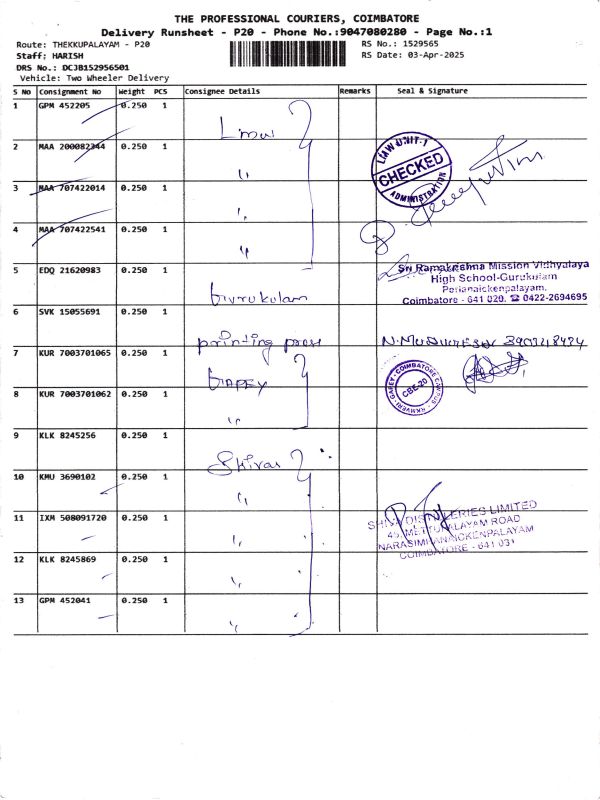 THE PROFESSIONAL COURIERS, COIMBATORE
Delivery Runsheet - P20 - Phone No.:9047080280 - Page No.:1
Route: THEKKUPALAYAM - P20
RS No.: 1529565
Staff: HARISH
RS Date: 03-Apr-2025
DRS No.: DCJB152956501
Vehicle: Two Wheeler Delivery
S No Consignment No Weight PCS Consignee Details Remarks Seal & Signature
1 GPM 452205 0.250 1
2 MAA 200082344 0.250 1 "
LMW UNIT-1
CHECKED
ADMINISTRATION
3 MAA 707422014 0.250 1 "
4 MAA 707422541 0.250 1 "
5 EDQ 21620983 0.250 1 Gurukulam
Sri Ramakrishna Mission Vidhyalaya
High School-Gurukulam
Perianaickenpalayam,
Coimbatore - 641 020. ☎ 0422-2694695
6 SVK 15055691 0.250 1 printing press
7 KUR 7003701065 0.250 1
8 KUR 7003701062 0.250 1 "
COIMBATORE CAMPUS
CBE-20
9 KLK 8245256 0.250 1
10 KMU 3690102 0.250 1 "
11 IXM 508091720 0.250 1 "
SHIVA DISTILLERIES LIMITED
45, METTUPALAYAM ROAD
NARASIMHANAICKENPALAYAM
COIMBATORE - 641 031
12 KLK 8245869 0.250 1 "
13 GPM 452041 0.250 1 "